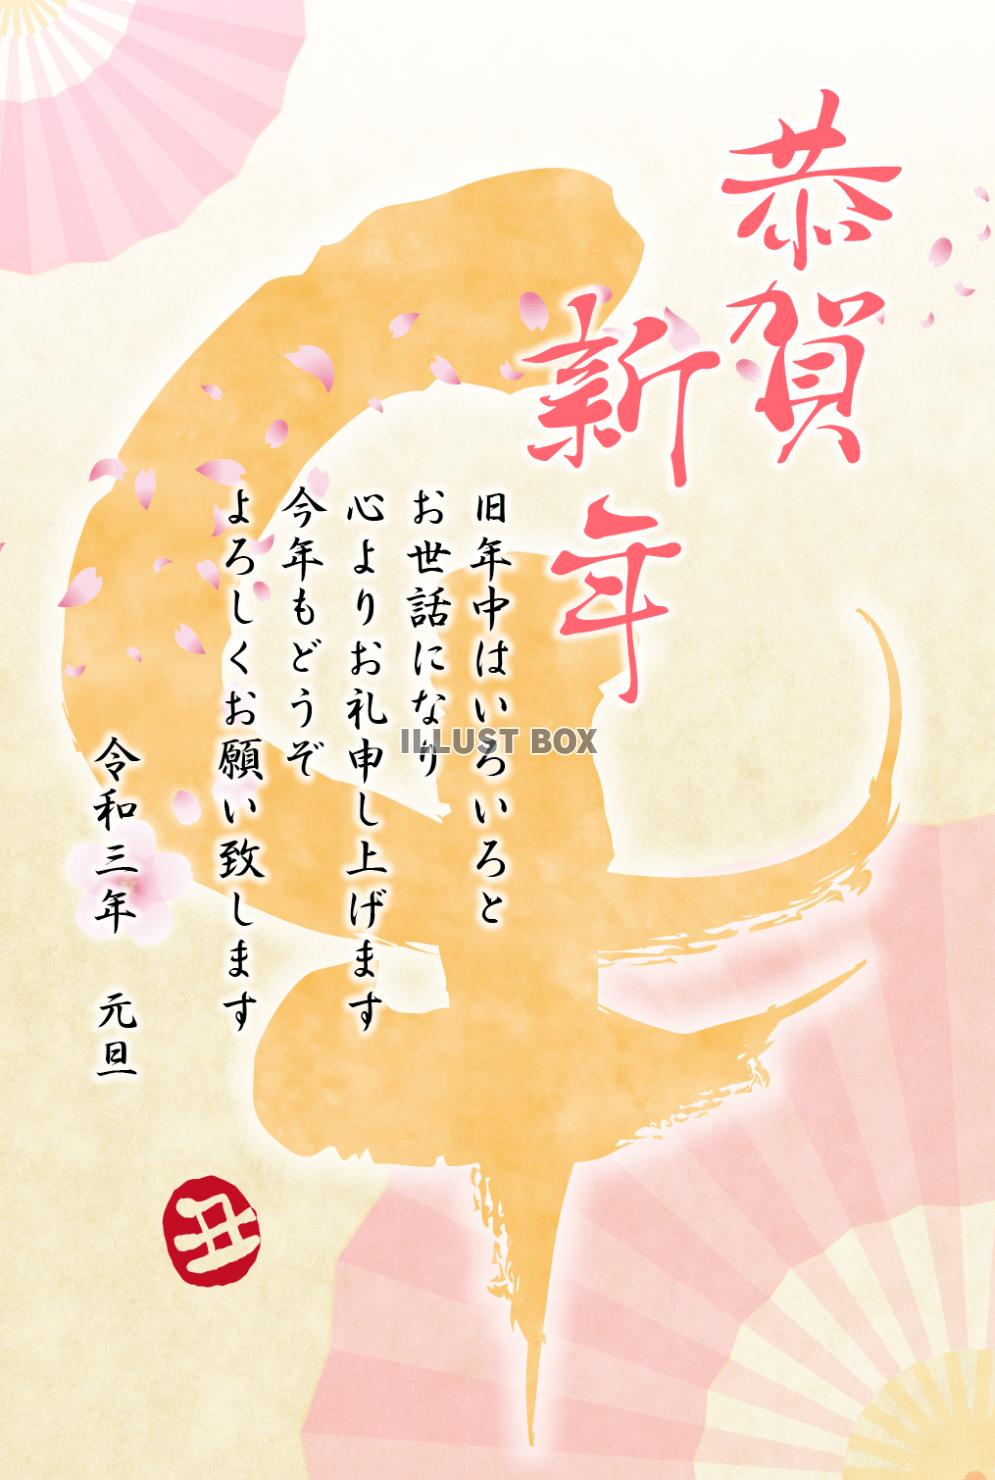 恭賀
新年
旧年中はいろいろと
お世話になり
心よりお礼申し上げます
今年もどうぞ
よろしくお願い致します
令和三年　元旦
丑
牛
ILLUST BOX